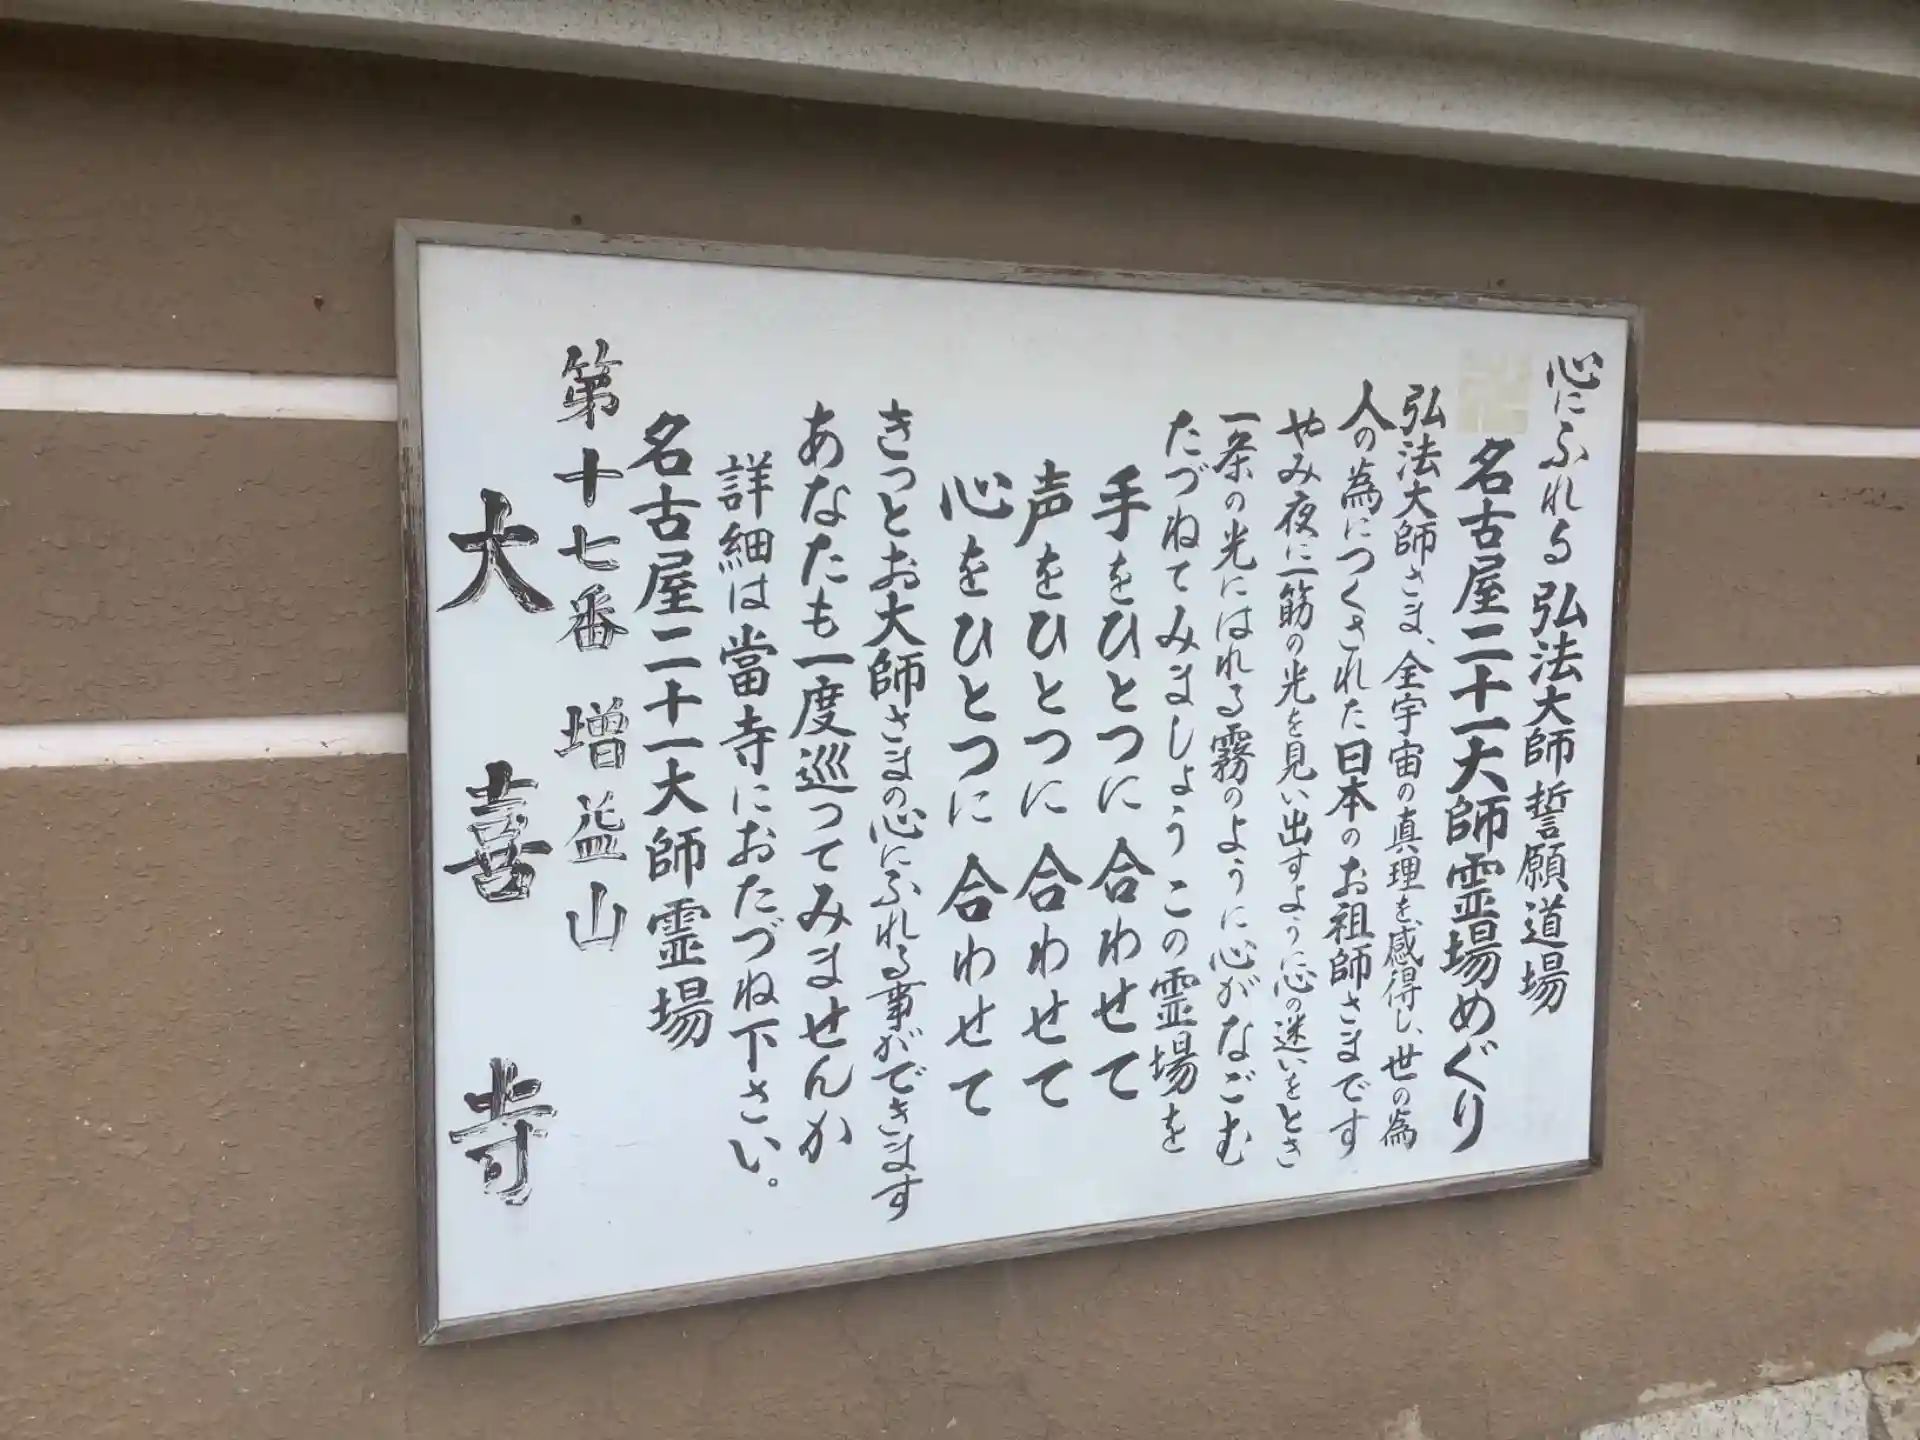 心にふれる 弘法大師誓願道場
卍 名古屋二十一大師霊場めぐり
弘法大師さま、全宇宙の真理を感得し、世の為
人の為につくされた日本のお祖師さまです
やみ夜に一筋の光を見い出すように心の迷いをとき
一条の光にはれる霧のように心がなごむ
たづねてみましょうこの霊場を
手をひとつに合わせて
声をひとつに合わせて
心をひとつに合わせて
きっとお大師さまの心にふれる事ができます
あなたも一度巡ってみませんか
詳細は當寺におたづね下さい。
名古屋二十一大師霊場
第十七番 増益山
大喜寺